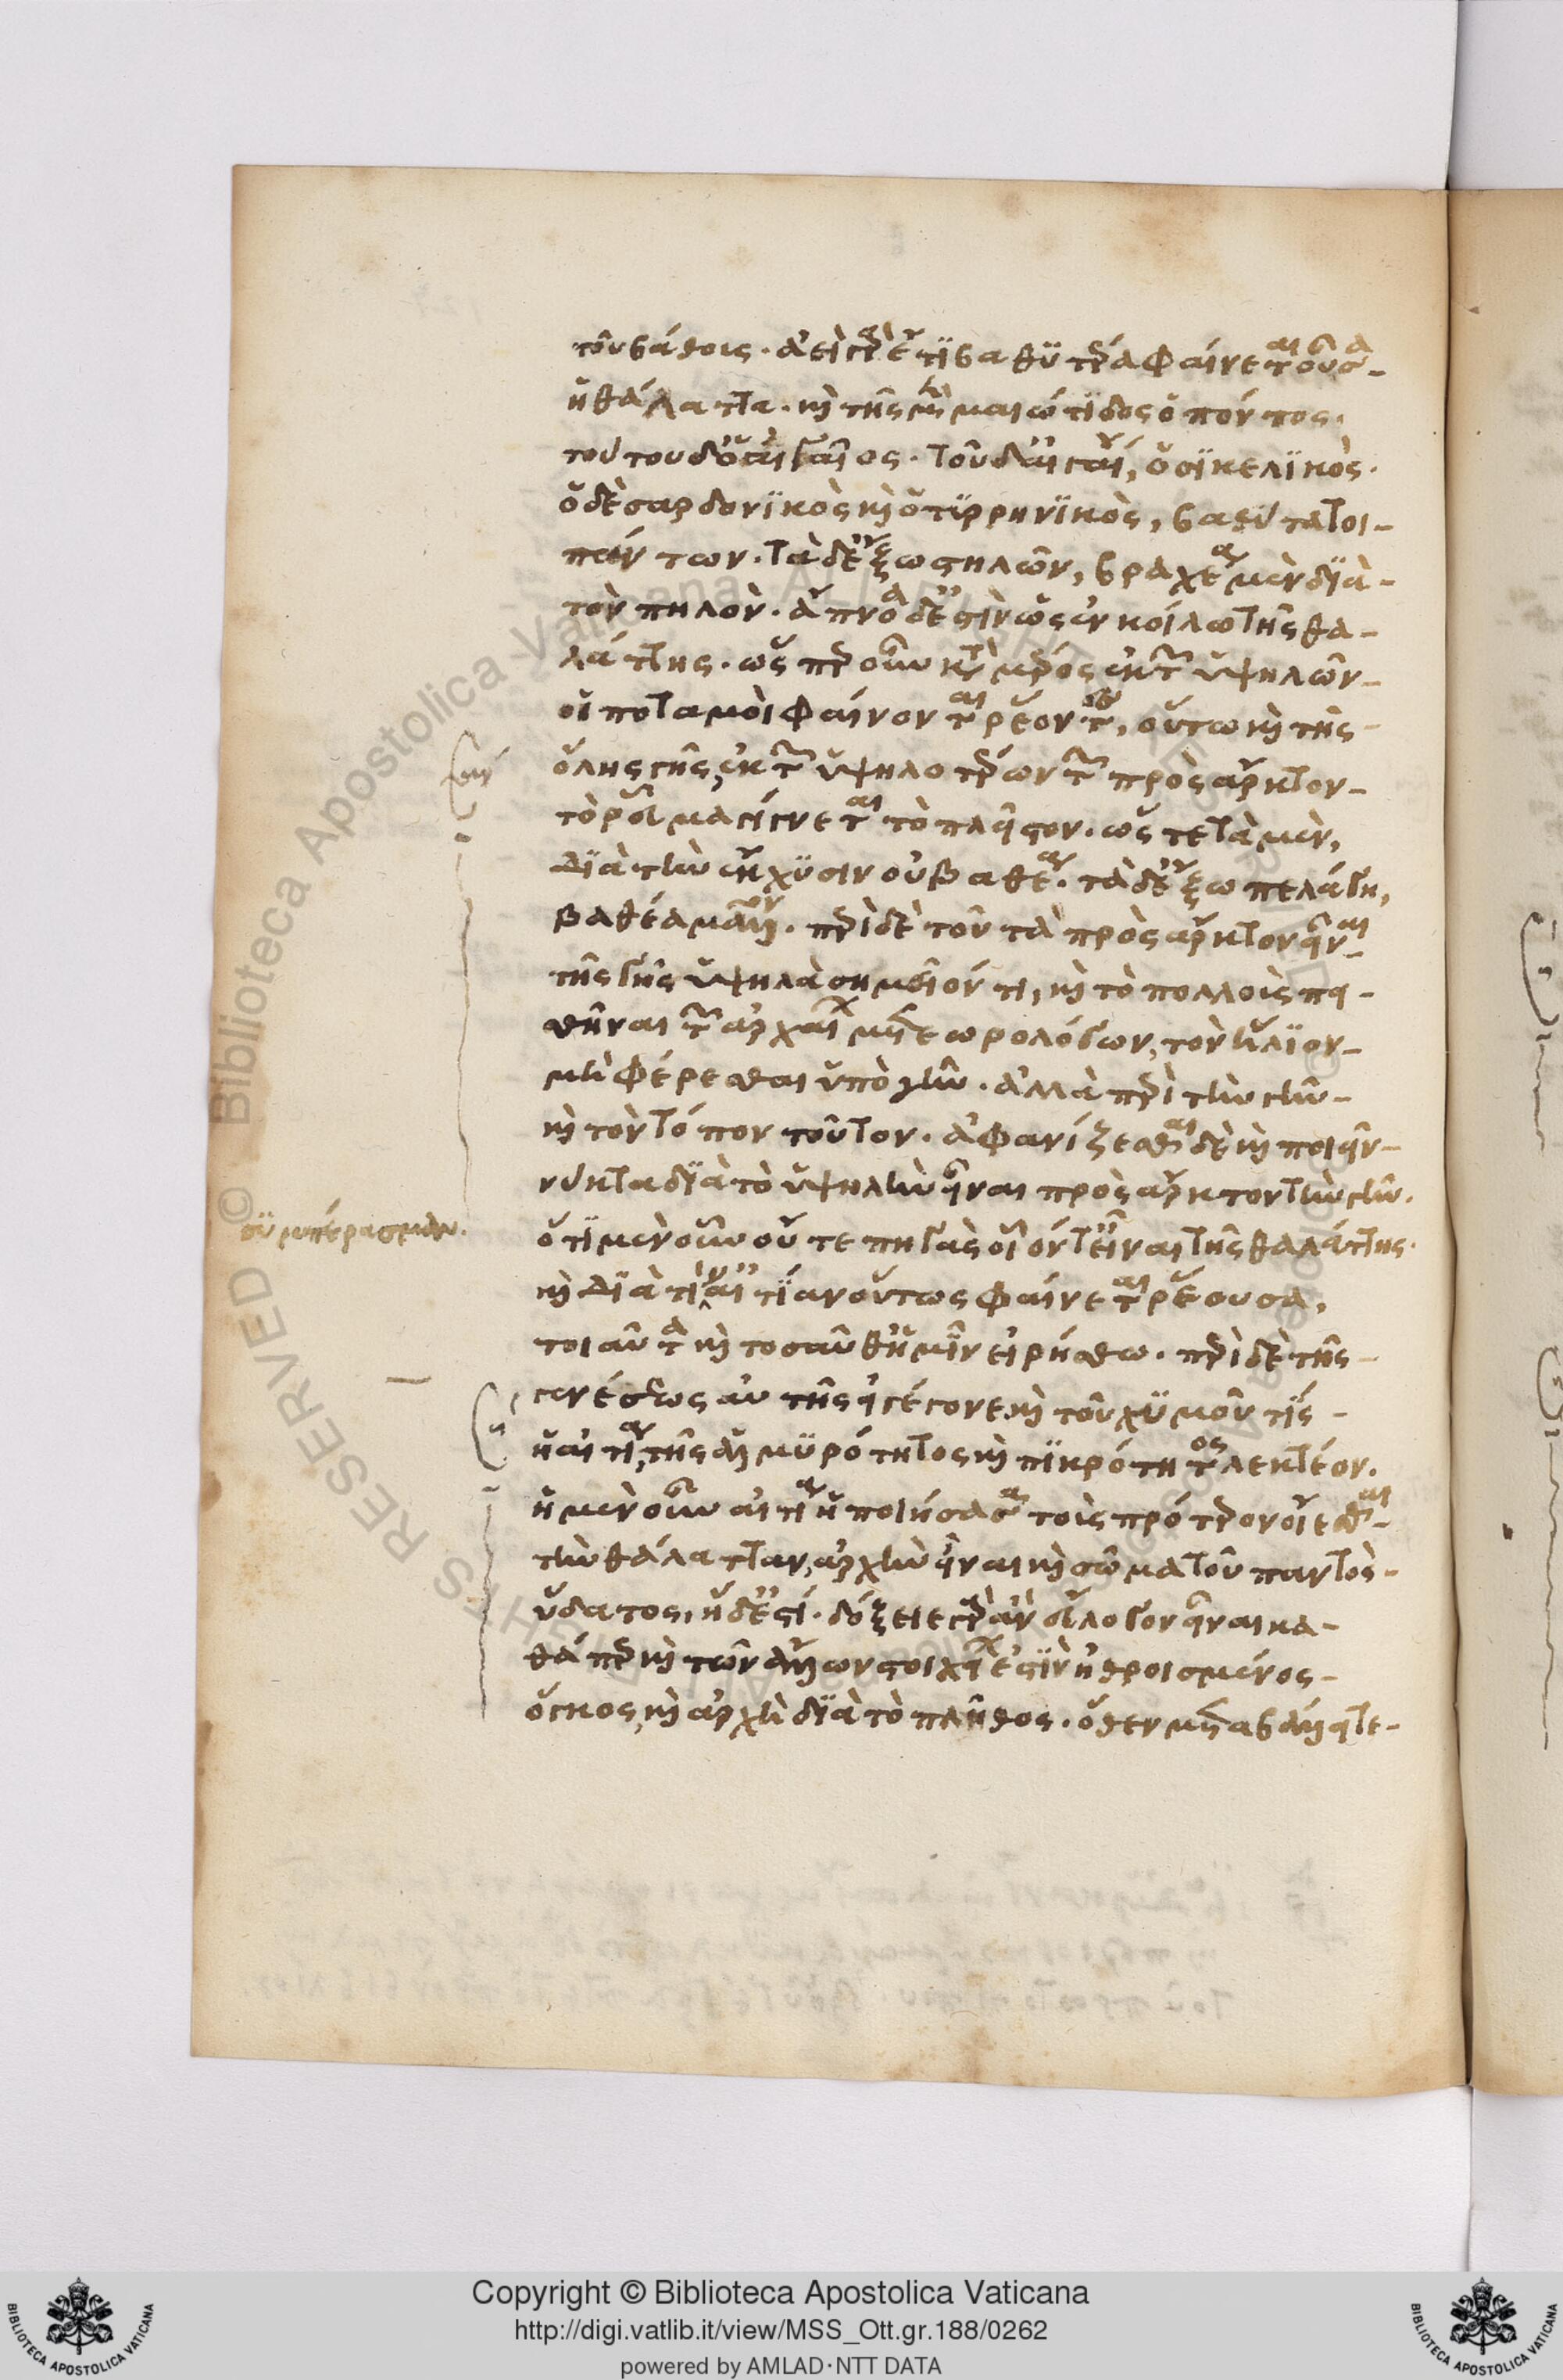 τοῦ βάθοις. ἀεὶ γὰρ ἔτι βαθυτέρα φαίνεται οὖσα
ἡ θάλαττα. καὶ τῆς μὲν μαιώτιδος ὁ πόντος.
τούτου δ' ὁ αἰγαῖος. τοῦ δ' αἰγαίου, ὁ σικελικὸς.
ὁ δὲ σαρδονικὸς καὶ ὁ τυρρηνικὸς, βαθύτατοι
πάντων. τὰ δ' ἔξω στηλῶν, βραχέα μὲν διὰ
τὸν πηλὸν. ἄπνοα δ' ἐστὶν ὡς ἐν κοίλω τῆς θα-
λάττης. ὥσπερ οὖν κατὰ μέρος ἐκ τῶν ὑψηλῶν
οἱ ποταμοὶ φαίνονται ῥέοντες, οὕτω καὶ τῆς
ὅλης γῆς, ἐκ τῶν ὑψηλοτέρων τῶν πρὸς ἄρκτον
τὸ ῥεῦμα γίγνεται τὸ πλεῖστον. ὥστε τὰ μὲν,
διὰ τὴν ἔκχυσιν οὐ βαθέα. τὰ δ' ἔξω πελάγη,
βαθέα μᾶλλον. περὶ δὲ τοῦ τὰ πρὸς ἄρκτον εἶναι
τῆς γῆς ὑψηλὰ σημεῖόν τι, καὶ τὸ πολλοὺς πει-
σθῆναι τῶν ἀρχαίων μετεωρολόγων, τὸν ἥλιον
μὴ φέρεσθαι ὑπὸ γῆν. ἀλλὰ περὶ τὴν γῆν
καὶ τὸν τόπον τοῦτον. ἀφανίζεσθαι δὲ καὶ ποιεῖν
νύκτα διὰ τὸ ὑψηλὴν εἶναι πρὸς ἄρκτον τὴν γῆν.
συμπέρασμα.
ὅτι μὲν οὖν οὔτε πηγὰς οἷόν τ' εἶναι τῆς θαλάττης.
καὶ διὰ τίν' αἰτίαν οὕτως φαίνεται ῥέουσα,
τοιαῦτα καὶ τοσαῦθ' ἡμῖν εἰρήσθω. περὶ δὲ τῆς
γενέσεως αὐτῆς εἰ γέγονε καὶ τοῦ χυμοῦ τίς
ἡ αἰτία, τῆς ἁλμυρότητος καὶ πικρότητος λεκτέον.
ἡ μὲν οὖν αἰτία ἡ ποιήσασα τοὺς πρότερον οἴεσθαι
τὴν θάλατταν, ἀρχὴν εἶναι καὶ σῶμα τοῦ παντὸς
ὕδατος, ἥδ' ἐστί. δόξειε γὰρ ἂν εὔλογον εἶναι κα-
θάπερ καὶ τῶν ἄλλων στοιχείων ἐστὶν ἠθροισμένος
ὄγκος, καὶ ἀρχὴ διὰ τὸ πλῆθος. ὅθεν μεταβάλλει τε
Copyright © Biblioteca Apostolica Vaticana
http://digi.vatlib.it/view/MSS_Ott.gr.188/0262
powered by AMLAD·NTT DATA